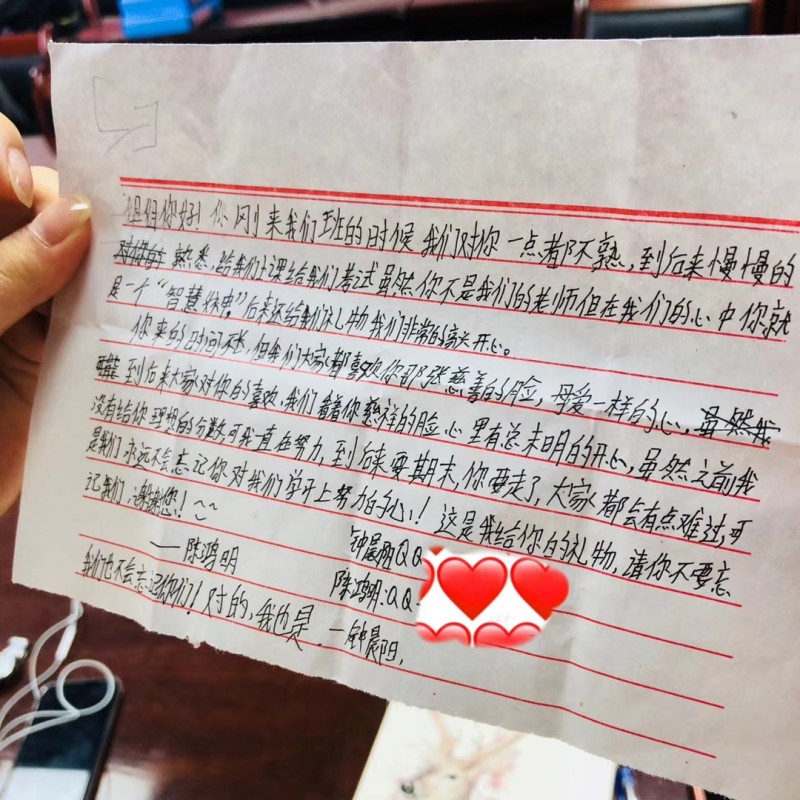 你好!你刚来我们班的时候我们对你一点都不熟,到后来慢慢的
熟悉,给我们上课给我们考试虽然你不是我们的老师但在我们的心中你就
是一个“智慧 ”后来还给我们礼物我们非常的 开心。
你来的时间不长,但我们大家都喜欢你那张慈善的脸,母爱一样的心,虽然我
到后来大家对你的喜欢,我们看着你慈祥的脸心里有总未明的开心,虽然之前我
没有给你理想的分数,可我一直在努力,到后来要期末,你要走了,大家都会有点难过,可
是我们永远不会忘记你对我们学习上努力的心!这是我给你的礼物,请你不要忘
记我们 谢谢您!~~
——陈鸿明
钟晨阳QQ
陈鸿明:QQ
我们也不会忘记你们!对的,我也是.—钟晨阳.